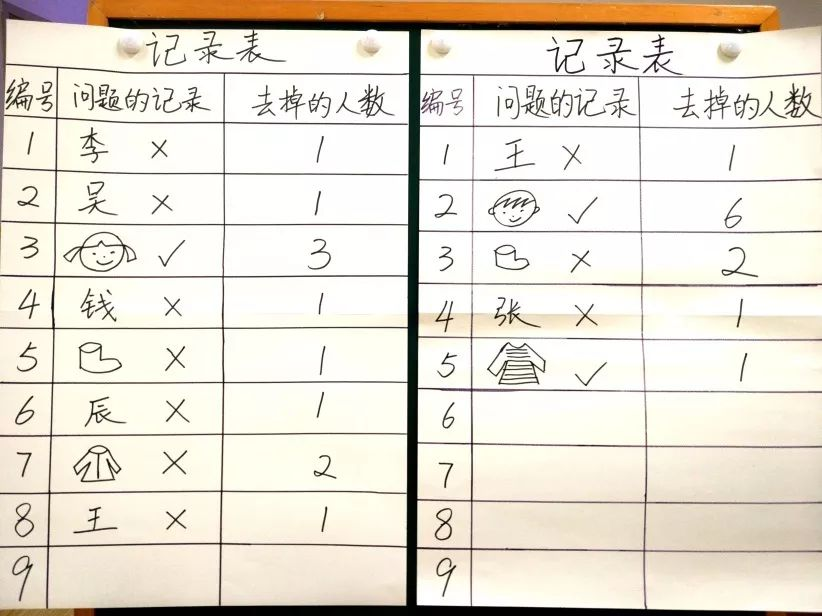 记录表
编号 问题的记录 去掉的人数
1 李 × 1
2 吴 × 1
3 ✓ 3
4 钱 × 1
5 × 1
6 辰 × 1
7 × 2
8 王 × 1
9
记录表
编号 问题的记录 去掉的人数
1 王 × 1
2 ✓ 6
3 × 2
4 张 × 1
5 ✓ 1
6
7
8
9